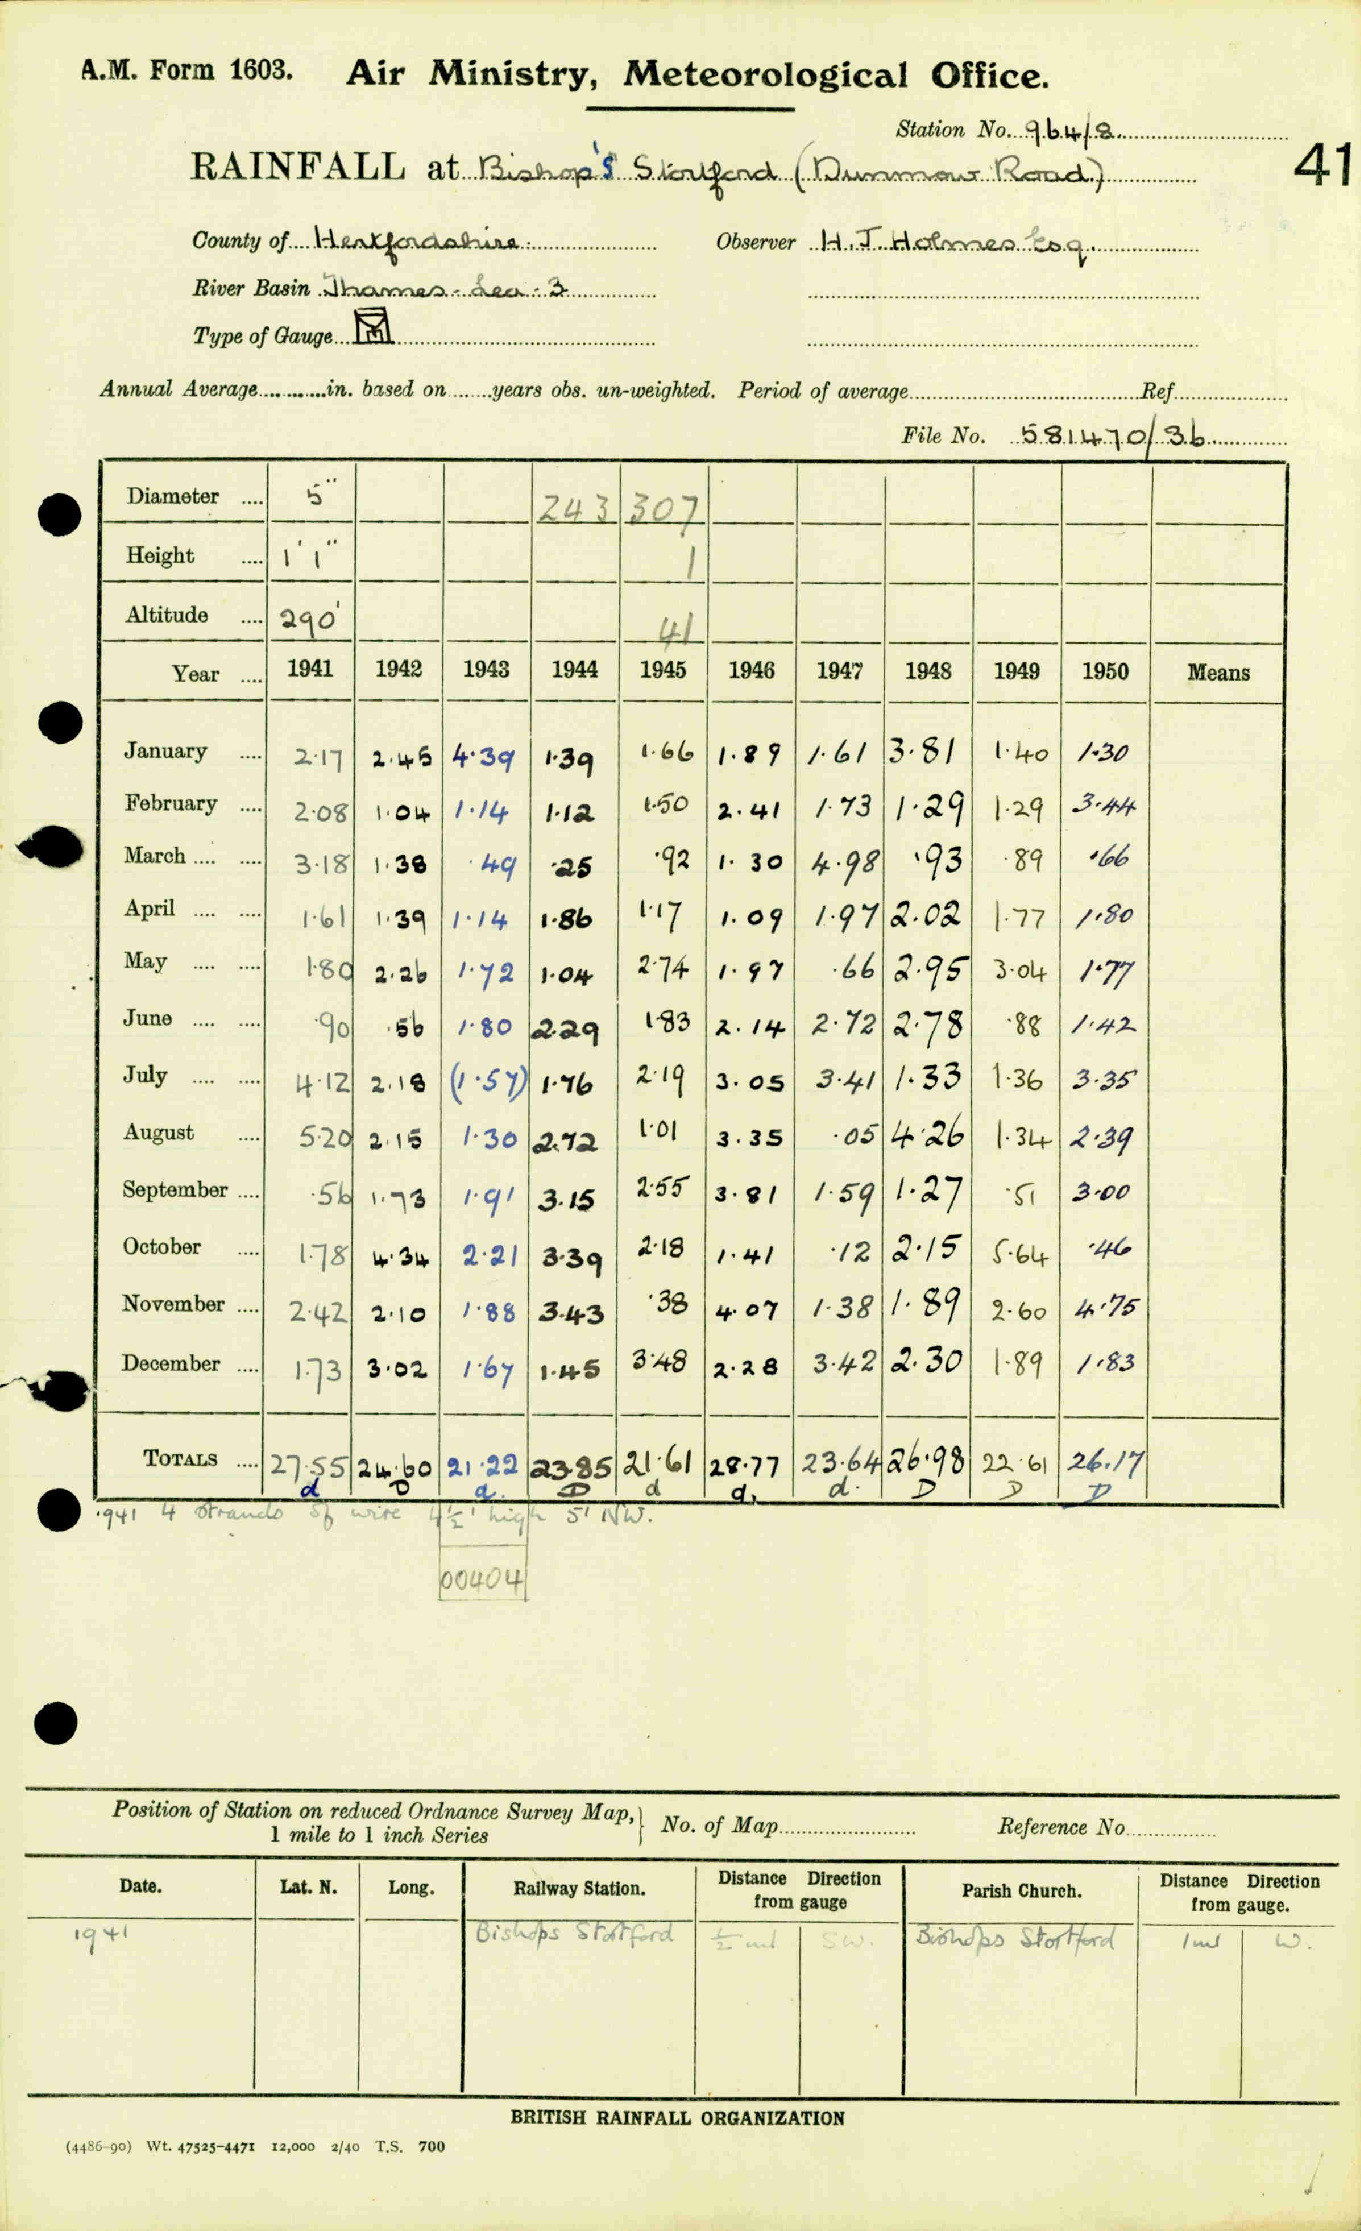 A.M. Form 1603. Air Ministry, Meteorological Office.
Station No. 964/8
RAINFALL at Bishop's Stortford (Dunmow Road)
41
County of Hertfordshire. Observer H.J. Holmes Esq.
River Basin Thames - Lea - 3
Type of Gauge M
Annual Average............in. based on .......years obs. un-weighted. Period of average Ref.
File No. 581470/36
Diameter .... 5" 243 307
Height .... 1' 1" 1
Altitude .... 290' 41
Year .... 1941 1942 1943 1944 1945 1946 1947 1948 1949 1950 Means
January .... 2.17 2.45 4.39 1.39 1.66 1.89 1.61 3.81 1.40 1.30
February .... 2.08 1.04 1.14 1.12 1.50 2.41 1.73 1.29 1.29 3.44
March .... .... 3.18 1.38 .49 .25 .92 1.30 4.98 .93 .89 .66
April .... .... 1.61 1.39 1.14 1.86 1.17 1.09 1.97 2.02 1.77 1.80
May .... .... 1.80 2.26 1.72 1.04 2.74 1.97 .66 2.95 3.04 1.77
June .... .... .90 .56 1.80 2.29 1.83 2.14 2.72 2.78 .88 1.42
July .... .... 4.12 2.18 (1.57) 1.76 2.19 3.05 3.41 1.33 1.36 3.35
August .... 5.20 2.15 1.30 2.72 1.01 3.35 .05 4.26 1.34 2.39
September .... .56 1.73 1.91 3.15 2.55 3.81 1.59 1.27 .51 3.00
October .... 1.78 4.34 2.21 3.39 2.18 1.41 .12 2.15 5.64 .46
November .... 2.42 2.10 1.88 3.43 .38 4.07 1.38 1.89 2.60 4.75
December .... 1.73 3.02 1.67 1.45 3.48 2.28 3.42 2.30 1.89 1.83
TOTALS .... 27.55 24.60 21.22 23.85 21.61 28.77 23.64 26.98 22.61 26.17
d D d. D d d. d. D D D
1941 4 strands of wire 4½' high 5' NW.
00404
Position of Station on reduced Ordnance Survey Map, } No. of Map Reference No.
1 mile to 1 inch Series
Date. Lat. N. Long. Railway Station. Distance Direction from gauge Parish Church. Distance Direction from gauge.
1941 Bishops Stortford ½ ml SW. Bishops Stortford 1ml W.
BRITISH RAINFALL ORGANIZATION
(4486-90) Wt. 47525-4471 12,000 2/40 T.S. 700